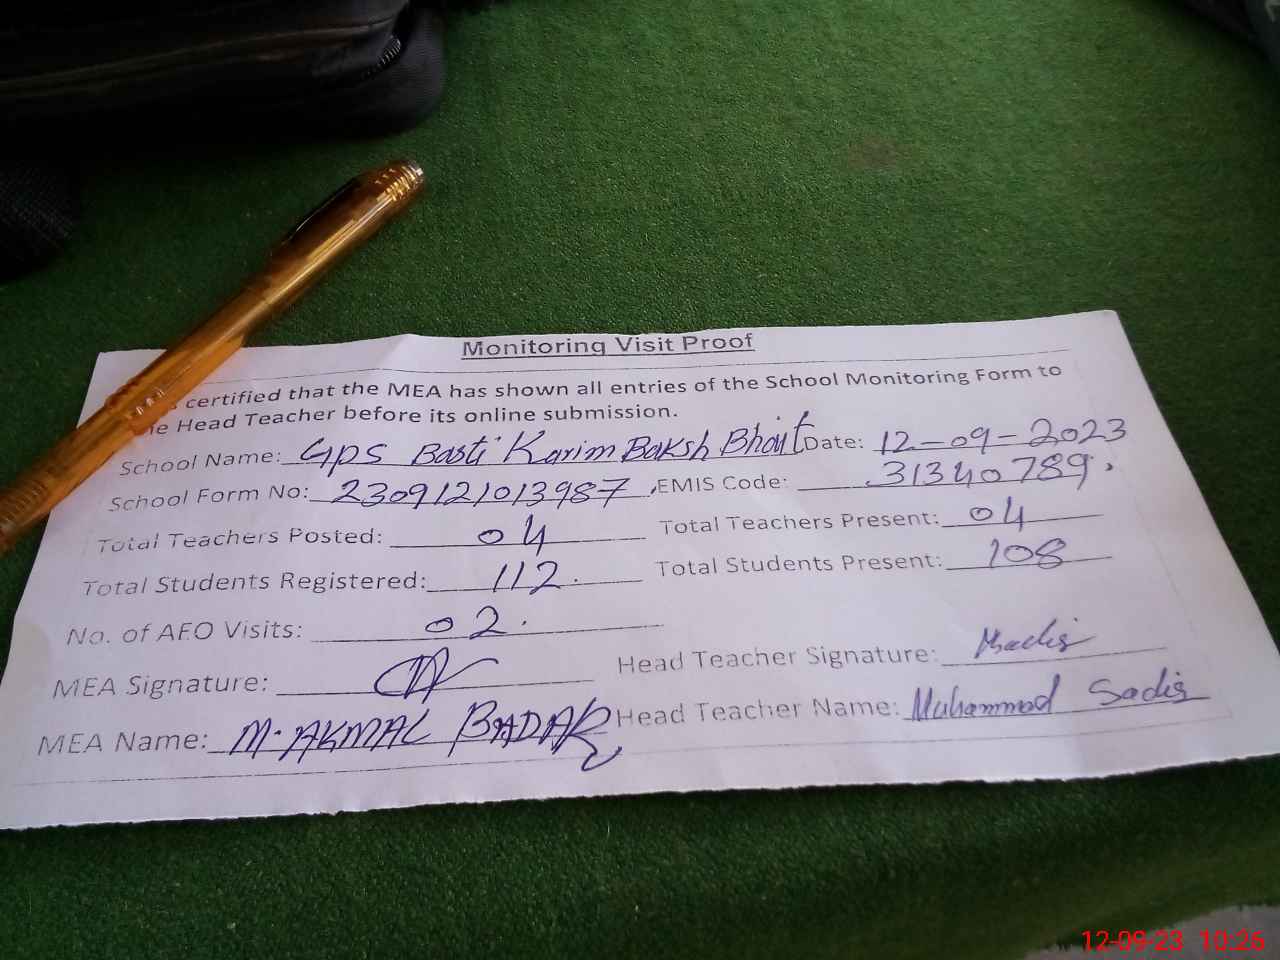 Monitoring Visit Proof
certified that the MEA has shown all entries of the School Monitoring Form to
he Head Teacher before its online submission.
School Name: GPS Basti Karim Baksh Bhait Date: 12-09-2023
School Form No: 2309121013987 EMIS Code: 31340789
Total Teachers Posted: 04 Total Teachers Present: 04
Total Students Registered: 112 Total Students Present: 108
No. of AEO Visits: 02
MEA Signature: Head Teacher Signature:
MEA Name: M. AKMAL BADAR Head Teacher Name: Muhammad Sadiq
12-09-23 10:26